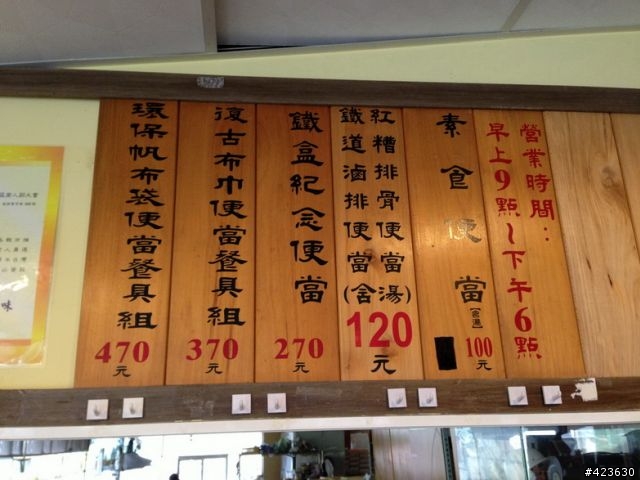 營業時間：
早上9點～下午6點
素食便當
(含湯)
100元
紅糟排骨便當
鐵道滷排便當
(含湯)
120元
鐵盒紀念便當
270元
復古布巾便當餐具組
370元
環保帆布袋便當餐具組
470元
味
#423630